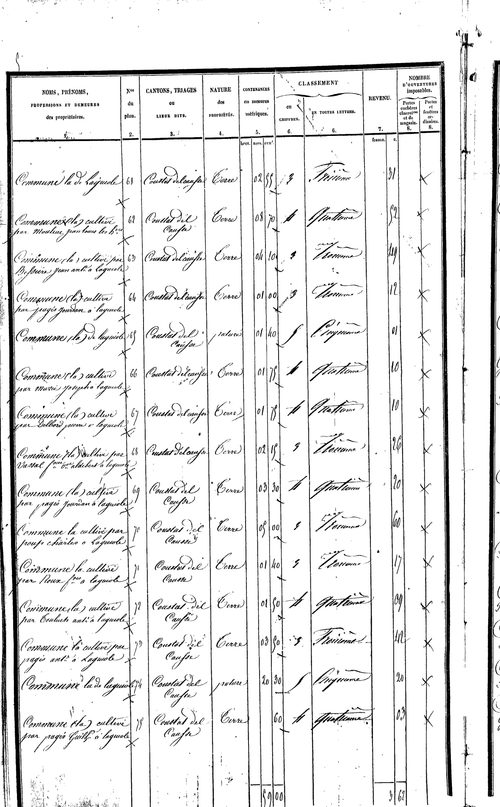 NOMS, PRÉNOMS,
PROFESSIONS ET DEMEURES
des propriétaires.
1.
Nos
du
plan.
2.
CANTONS, TRIAGES
ou
LIEUX DITS.
3.
NATURE
des
PROPRIÉTÉS.
4.
CONTENANCES
EN MESURES
métriques.
5.
CLASSEMENT
EN
CHIFFRES.
6.
EN TOUTES LETTRES.
6.
REVENU.
7.
NOMBRE
D'OUVERTURES
imposables.
Portes
cochères
charretières
et de
magasin.
8.
Portes
et
fenêtres
ordinaires.
8.
hect. ares. cent.
francs. c.
Commune la de Laguiole 61 Coustat del causse Terre 02 55 3 Troisième 31
Commune (la) cultivé 62 Coustat del Causse Terre 08 70 4 Quatrième 52
par
Commune (la) cultivé 63 Coustat del causse Terre 04 10 3 Troisième 49
par Bessière jean ant. à Laguiole
Commune (la) cultivé 64 Coustat del causse Terre 01 00 3 Troisième 12
par pagès à laguiole
Commune (la) de laguiole 65 Coustat del Causse pature 01 40 5 Cinquième 01
Commune (la) cultivé 66 Coustat del causse Terre 01 75 4 Quatrième 10
par joseph à laguiole
Commune (la) cultivé 67 Coustat del causse Terre 01 75 4 Quatrième 10
par à laguiole
Commune (la) cultivé par 68 Coustat del causse Terre 02 15 3 Troisième 26
à laguiole
Commune (la) cultivé 69 Coustat del Causse Terre 03 30 4 Quatrième 20
par pagès à laguiole
Commune la cultivé par 70 Coustat del Causse Terre 05 00 3 Troisième 60
charles à Laguiole
Commune la cultivé 71 Coustat del Causse Terre 01 40 3 Troisième 17
par Roux à laguiole
Commune (la) cultivé 72 Coustat del Causse Terre 01 50 4 Quatrième 09
par ant. à laguiole
Commune la cultivé par 73 Coustat del Causse Terre 03 50 3 Troisième 42
pagès ant. à Laguiole
Commune la de laguiole 74 Coustat del Causse pature 20 30 5 Cinquième 20
Commune (la) cultivé 75 Coustat del Causse Terre 60 4 Quatrième 03
par pagès à laguiole
59 00
3 62